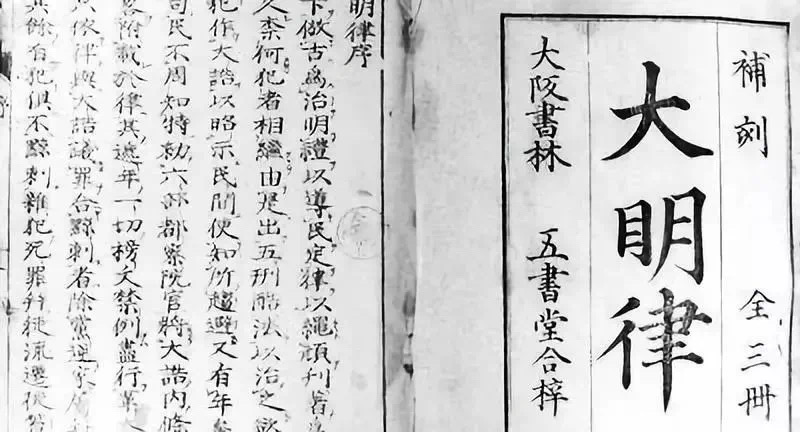 補刻 全三冊
大明律
大阪書林 五書堂合梓
明律序
下倣古為治明禮以導民定律以繩頑刊著為
久柰何犯者相繼由是出五刑酷法以治之欲
犯作大誥以昭示民間使知所趨避又有年
司民不周知特勅六部都察院官將大誥內條
附載於律其遞年一切榜文禁例盡行革
依律與大誥議罪合黥刺者除黨逆家屬
其餘有犯俱不黥刺雜犯死罪并徒流遷徙笞
序